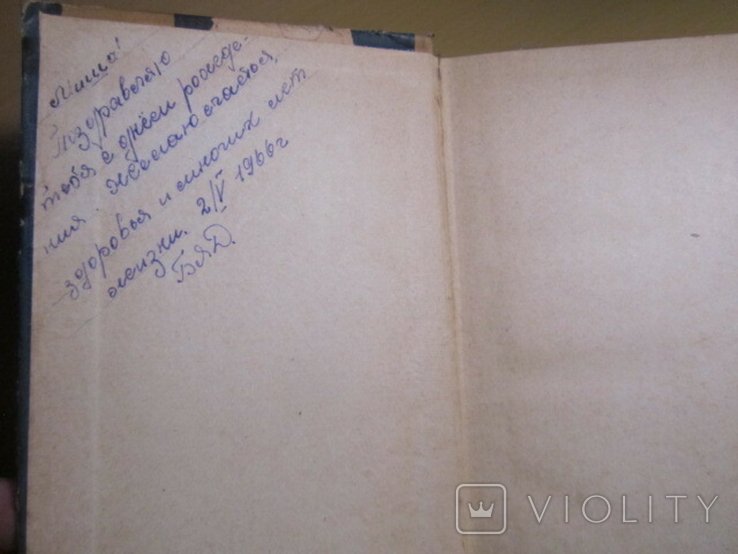 Миша!
Поздравляю
тебя с днём рожде-
ния. Желаю счастья,
здоровья и многих лет
жизни. 2/V 1966г
БЯД.
VIOLITY